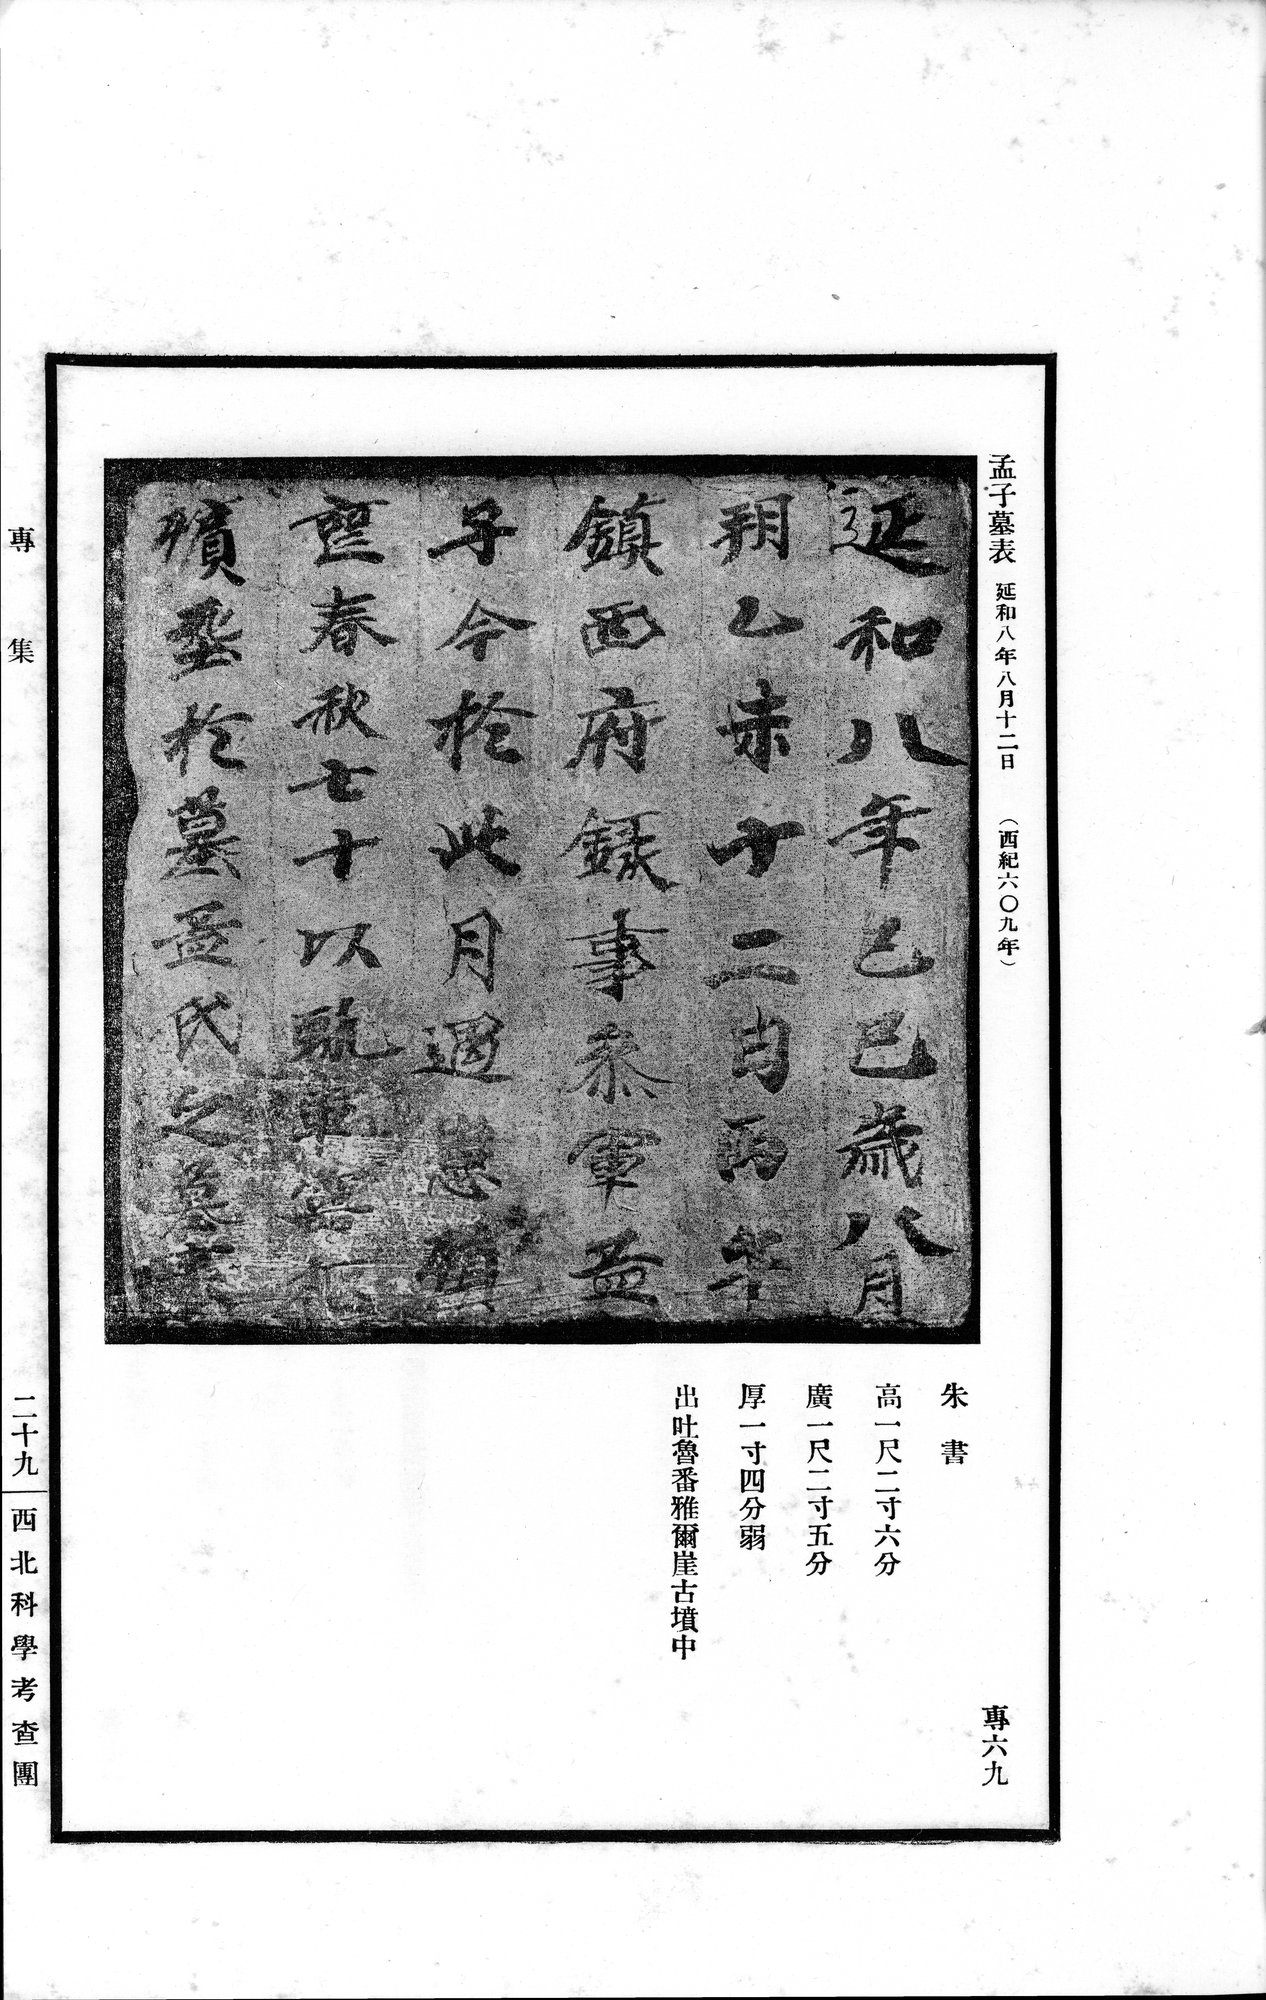 孟子墓表 延和八年八月十二日 （西紀六〇九年）
延和八年己巳歲八月
朔乙未十二日丙午
鎮西府錄事叅軍孟
子今於此月遇患殞
喪春秋七十以虬車靈柩
殯塟於墓孟氏之墓表
朱書
高一尺二寸六分
廣一尺二寸五分
厚一寸四分弱
出吐魯番雅爾崖古墳中
專六九
專集
二十九
西北科學考查團